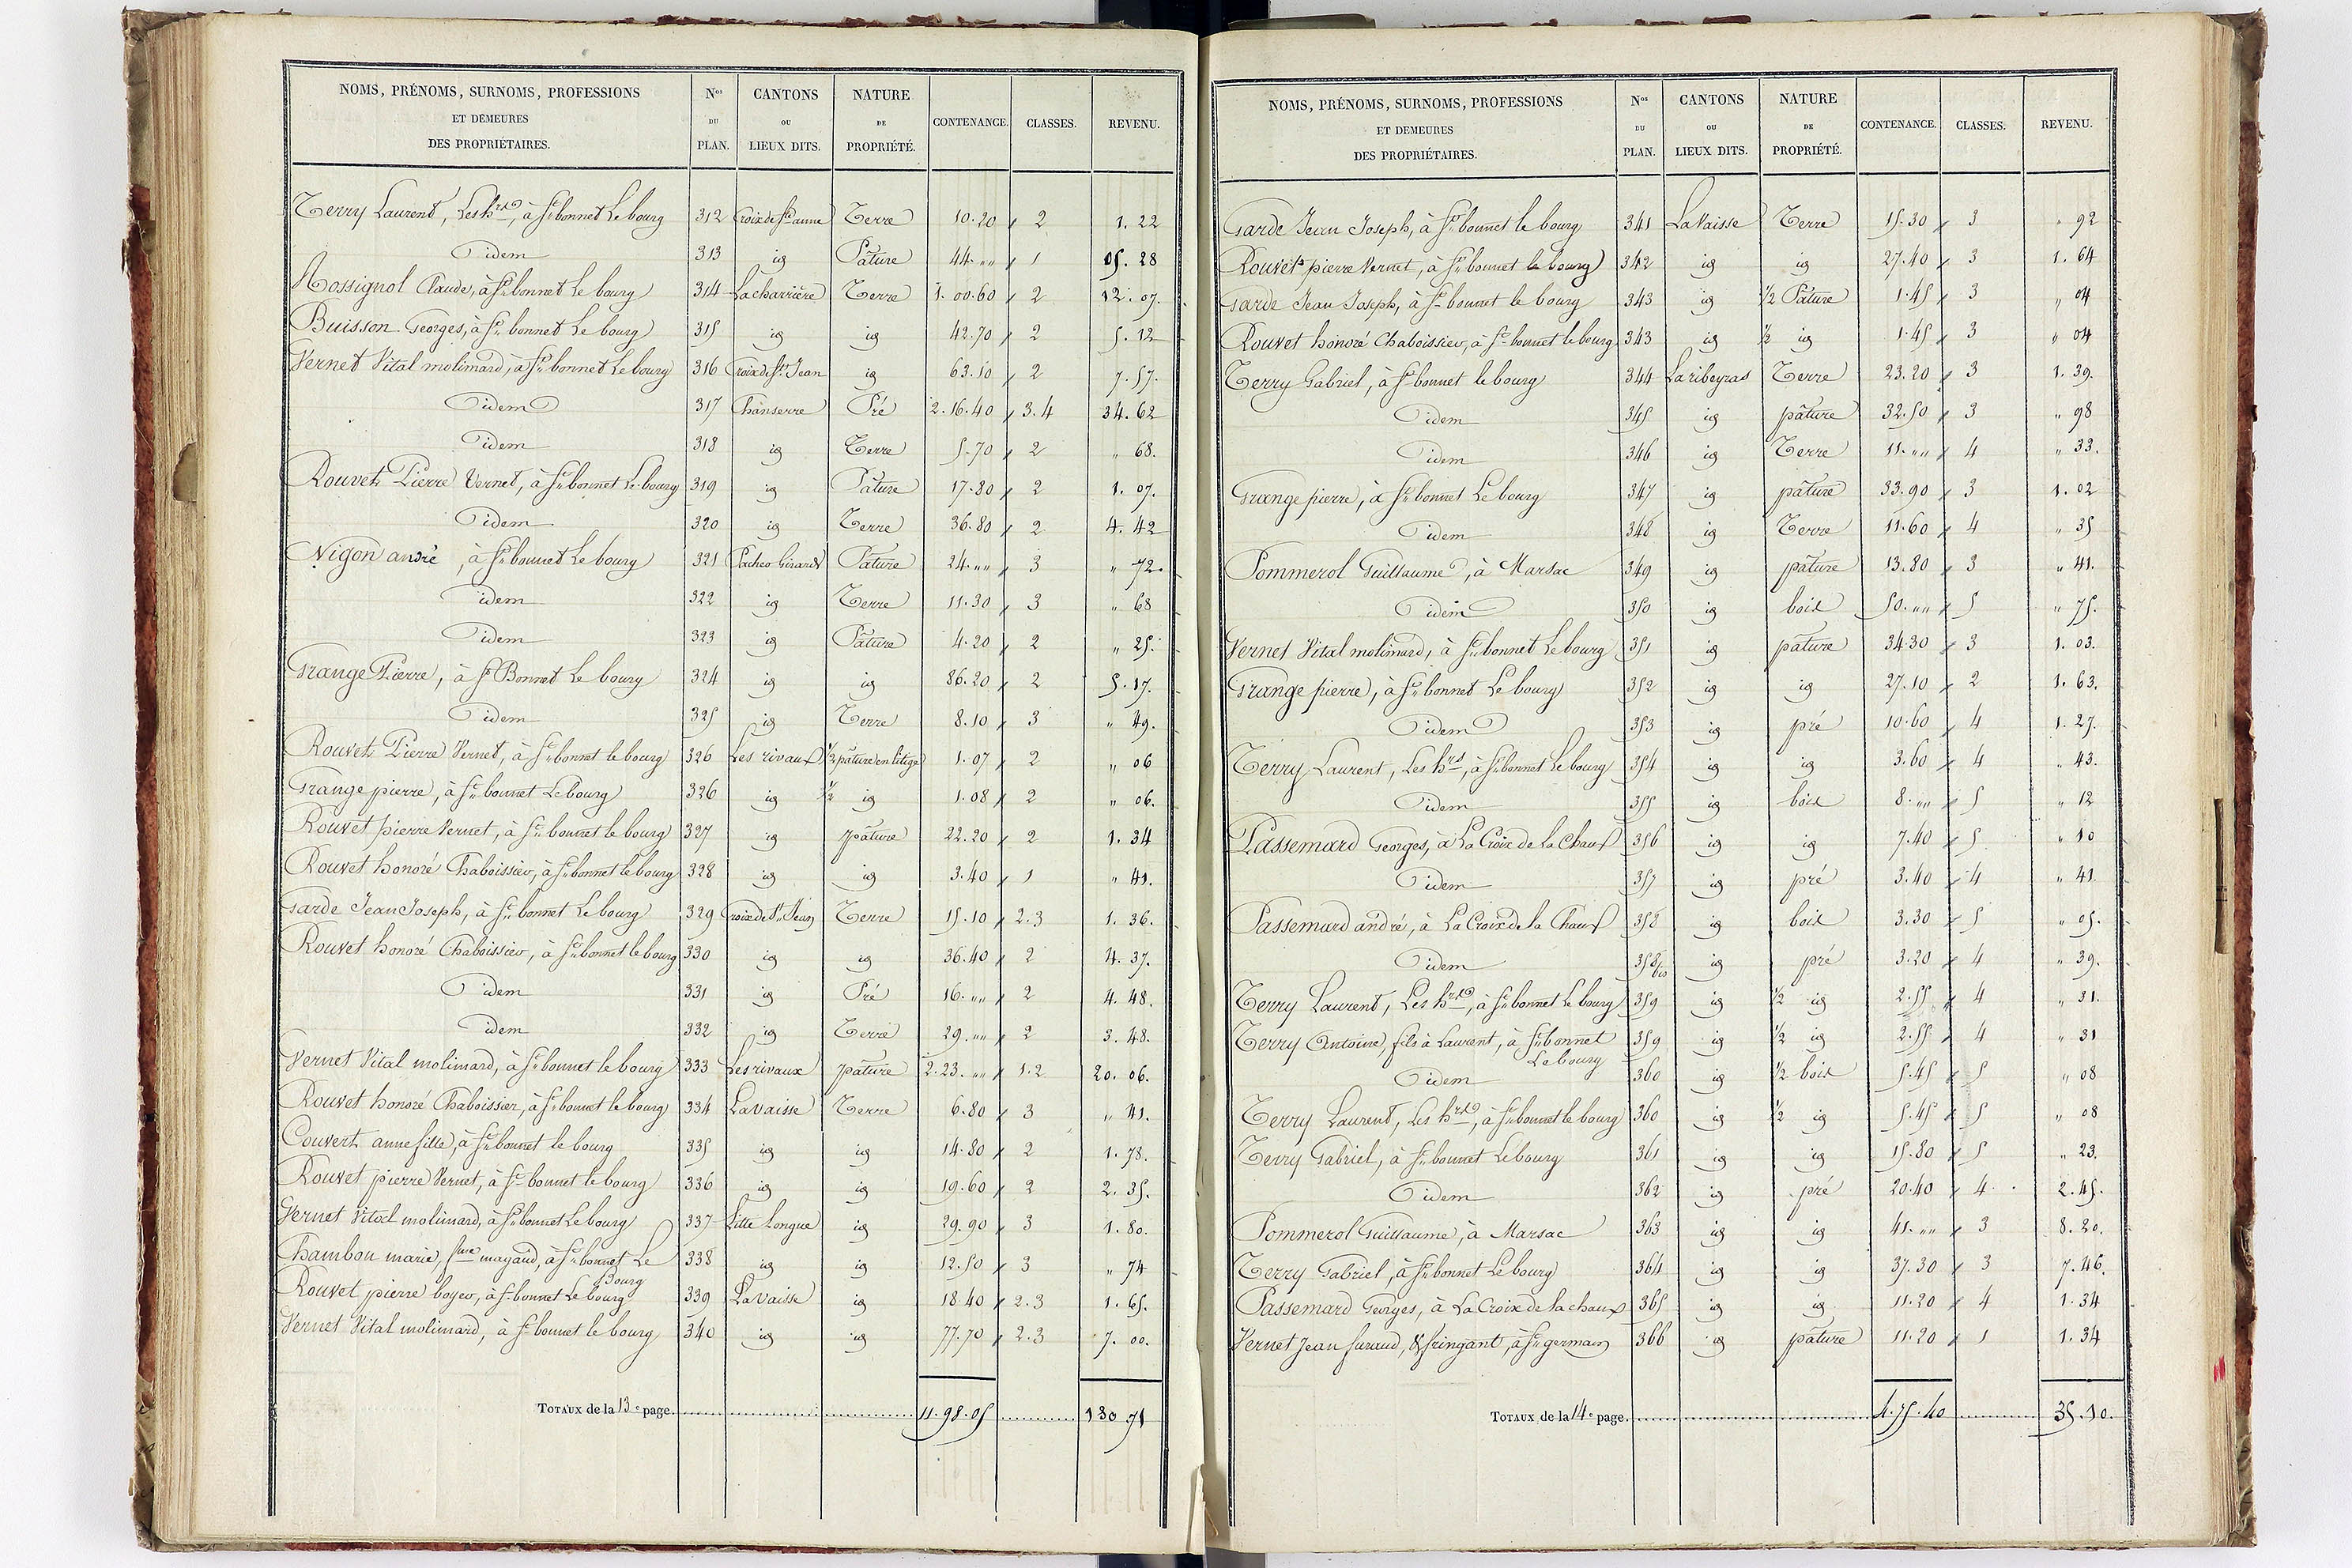 NOMS, PRÉNOMS, SURNOMS, PROFESSIONS ET DEMEURES DES PROPRIÉTAIRES. Nos DU PLAN. CANTONS OU LIEUX DITS. NATURE DE PROPRIÉTÉ. CONTENANCE. CLASSES. REVENU.
Terry Laurent, Les hrs, à St bonnet Le bourg 312 Croix de Ste anne Terre 10.20 2 1. 22
idem 313 id Pature 44. „„ 1 05. 28
Rossignol Claude, à St bonnet Le bourg 314 La charrière Terre 1. 00.60 2 12. 07.
Buisson Georges, à St bonnet Le bourg 315 id id 42.70 2 5. 12
Vernet Vital molimard, à St bonnet Le bourg 316 Croix de St Jean id 63.10 2 7. 57.
idem 317 Chanserre Pré 2. 16. 40 3. 4 34. 62
idem 318 id Terre 5.70 2 „ 68.
Rouvet Pierre Vernet, à St bonnet Le bourg 319 id Pature 17.80 2 1. 07.
idem 320 id Terre 36.80 2 4. 42
Vigon andré, à St bonnet Le bourg 321 Pacheo Girard Pature 24. „„ 3 „ 72.
idem 322 id Terre 11.30 3 „ 68
idem 323 id Pature 4.20 2 „ 25.
Grange Pierre, à St Bonnet Le bourg 324 id id 86.20 2 5. 17.
idem 325 id Terre 8.10 3 „ 49.
Rouvet Pierre Vernet, à St bonnet le bourg 326 Les rivaux 1/2 pature en litige 1.07 2 „ 06
Grange pierre, à St bonnet Le bourg 326 id 1/2 id 1.08 2 „ 06.
Rouvet pierre Vernet, à St bonnet le bourg 327 id pature 22.20 2 1. 34
Rouvet honoré Chaboissier, à St bonnet le bourg 328 id id 3.40 1 „ 41.
Garde Jean Joseph, à St bonnet Le bourg 329 Croix de St Jean Terre 15.10 2.3 1. 36.
Rouvet honoré Chaboissier, à St bonnet le bourg 330 id id 36.40 2 4. 37.
idem 331 id Pré 16. „„ 2 4. 48.
idem 332 id Terre 29. „„ 2 3. 48.
Vernet Vital molimard, à St bonnet le bourg 333 Les rivaux pature 2.23. „„ 1.2 20. 06.
Rouvet honoré Chaboissier, à St bonnet le bourg 334 La vaisse Terre 6.80 3 „ 41.
Couvert anne fille, à St bonnet le bourg 335 id id 14.80 2 1. 78.
Rouvet pierre Vernet, à St bonnet le bourg 336 id id 19.60 2 2. 35.
Vernet Vital molimard, à St bonnet Le bourg 337 Litte Longue id 29.90 3 1. 80.
Chambon marie, fme magaud, à St bonnet Le Bourg 338 id id 12.50 3 „ 74
Rouvet pierre boyer, à St bonnet Le bourg 339 La vaisse id 18.40 2.3 1. 65.
Vernet Vital molimard, à St bonnet le bourg 340 id id 77.70 2.3 7. 00.
TOTAUX de la 13e page. 11. 98. 05 130 71
NOMS, PRÉNOMS, SURNOMS, PROFESSIONS ET DEMEURES DES PROPRIÉTAIRES. Nos DU PLAN. CANTONS OU LIEUX DITS. NATURE DE PROPRIÉTÉ. CONTENANCE. CLASSES. REVENU.
Garde Jean Joseph, à St bonnet le bourg 341 La Vaisse Terre 15.30 3 „ 92
Rouvet pierre Vernet, à St bonnet le bourg 342 id id 27.40 3 1. 64
Garde Jean Joseph, à St bonnet le bourg 343 id 1/2 Pature 1.45 3 „ 04
Rouvet honoré Chaboissier, à St bonnet le bourg 343 id 1/2 id 1.45 3 „ 04
Terry Gabriel, à St bonnet le bourg 344 La ribeyras Terre 23.20 3 1. 39.
idem 345 id pâture 32.50 3 „ 98
idem 346 id Terre 11. „„ 4 „ 33.
Grange pierre, à St bonnet Le bourg 347 id pâture 33.90 3 1. 02
idem 348 id Terre 11.60 4 „ 35
Pommerol Guillaume, à Marsac 349 id pâture 13.80 3 „ 41.
idem 350 id bois 50. „„ 5 „ 75.
Vernet Vital molimard, à St bonnet Le bourg 351 id pature 34.30 3 1. 03.
Grange pierre, à St bonnet Le bourg 352 id id 27.10 2 1. 63.
idem 353 id pré 10.60 4 1. 27.
Terry Laurent, Les hrs, à St bonnet Le bourg 354 id id 3.60 4 „ 43.
idem 355 id bois 8. „„ 5 „ 12
Passemard Georges, à La Croix de la Chaux 356 id id 7.40 5 „ 10
idem 357 id pré 3.40 4 „ 41
Passemard andré, à La Croix de la Chaux 358 id bois 3.30 5 „ 05.
idem 358 bis id pré 3.20 4 „ 39.
Terry Laurent, Les hrs, à St bonnet Le bourg 359 id 1/2 id 2.55 4 „ 31.
Terry Antoine, fils à Laurent, à St bonnet Le bourg 359 id 1/2 id 2.55 4 „ 31
idem 360 id 1/2 bois 5.45 5 „ 08
Terry Laurent, Les hrs, à St bonnet le bourg 360 id 1/2 id 5.45 5 „ 08
Terry Gabriel, à St bonnet Le bourg 361 id id 15.80 5 „ 23.
idem 362 id pré 20.40 4 2. 45.
Pommerol Guillaume, à Marsac 363 id id 41. „„ 3 8. 20.
Terry Gabriel, à St bonnet Le bourg 364 id id 37.30 3 7. 46.
Passemard Georges, à La Croix de la chaux 365 id id 11.20 4 1. 34
Vernet Jean furaud, à St germain 366 id pature 11.20 1 1. 34
TOTAUX de la 14e page. 4. 75. 40 35. 10.